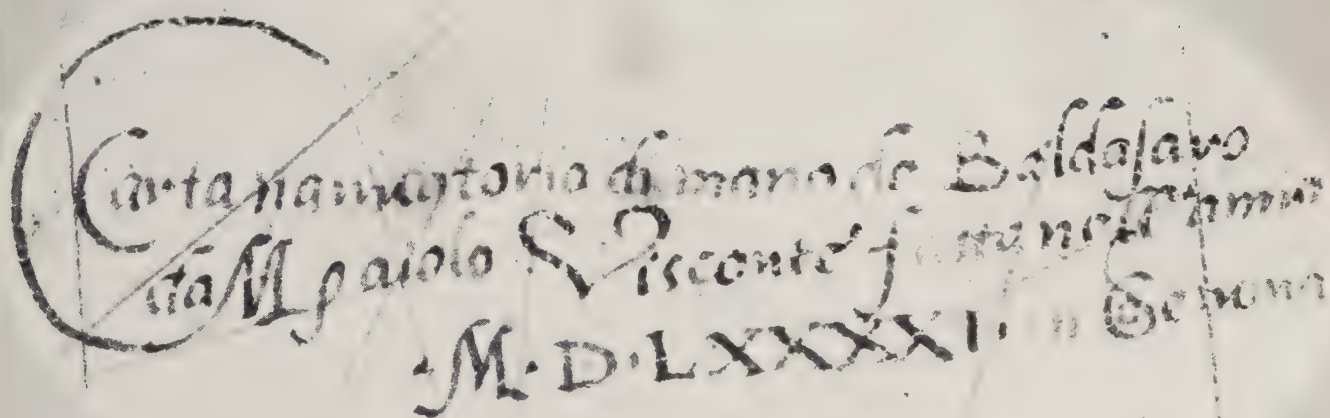 Carta nauigatoria di mano de Baldasaro
da Maiolo Visconte fatta nell anno
M·D·LXXXXI in Genoua